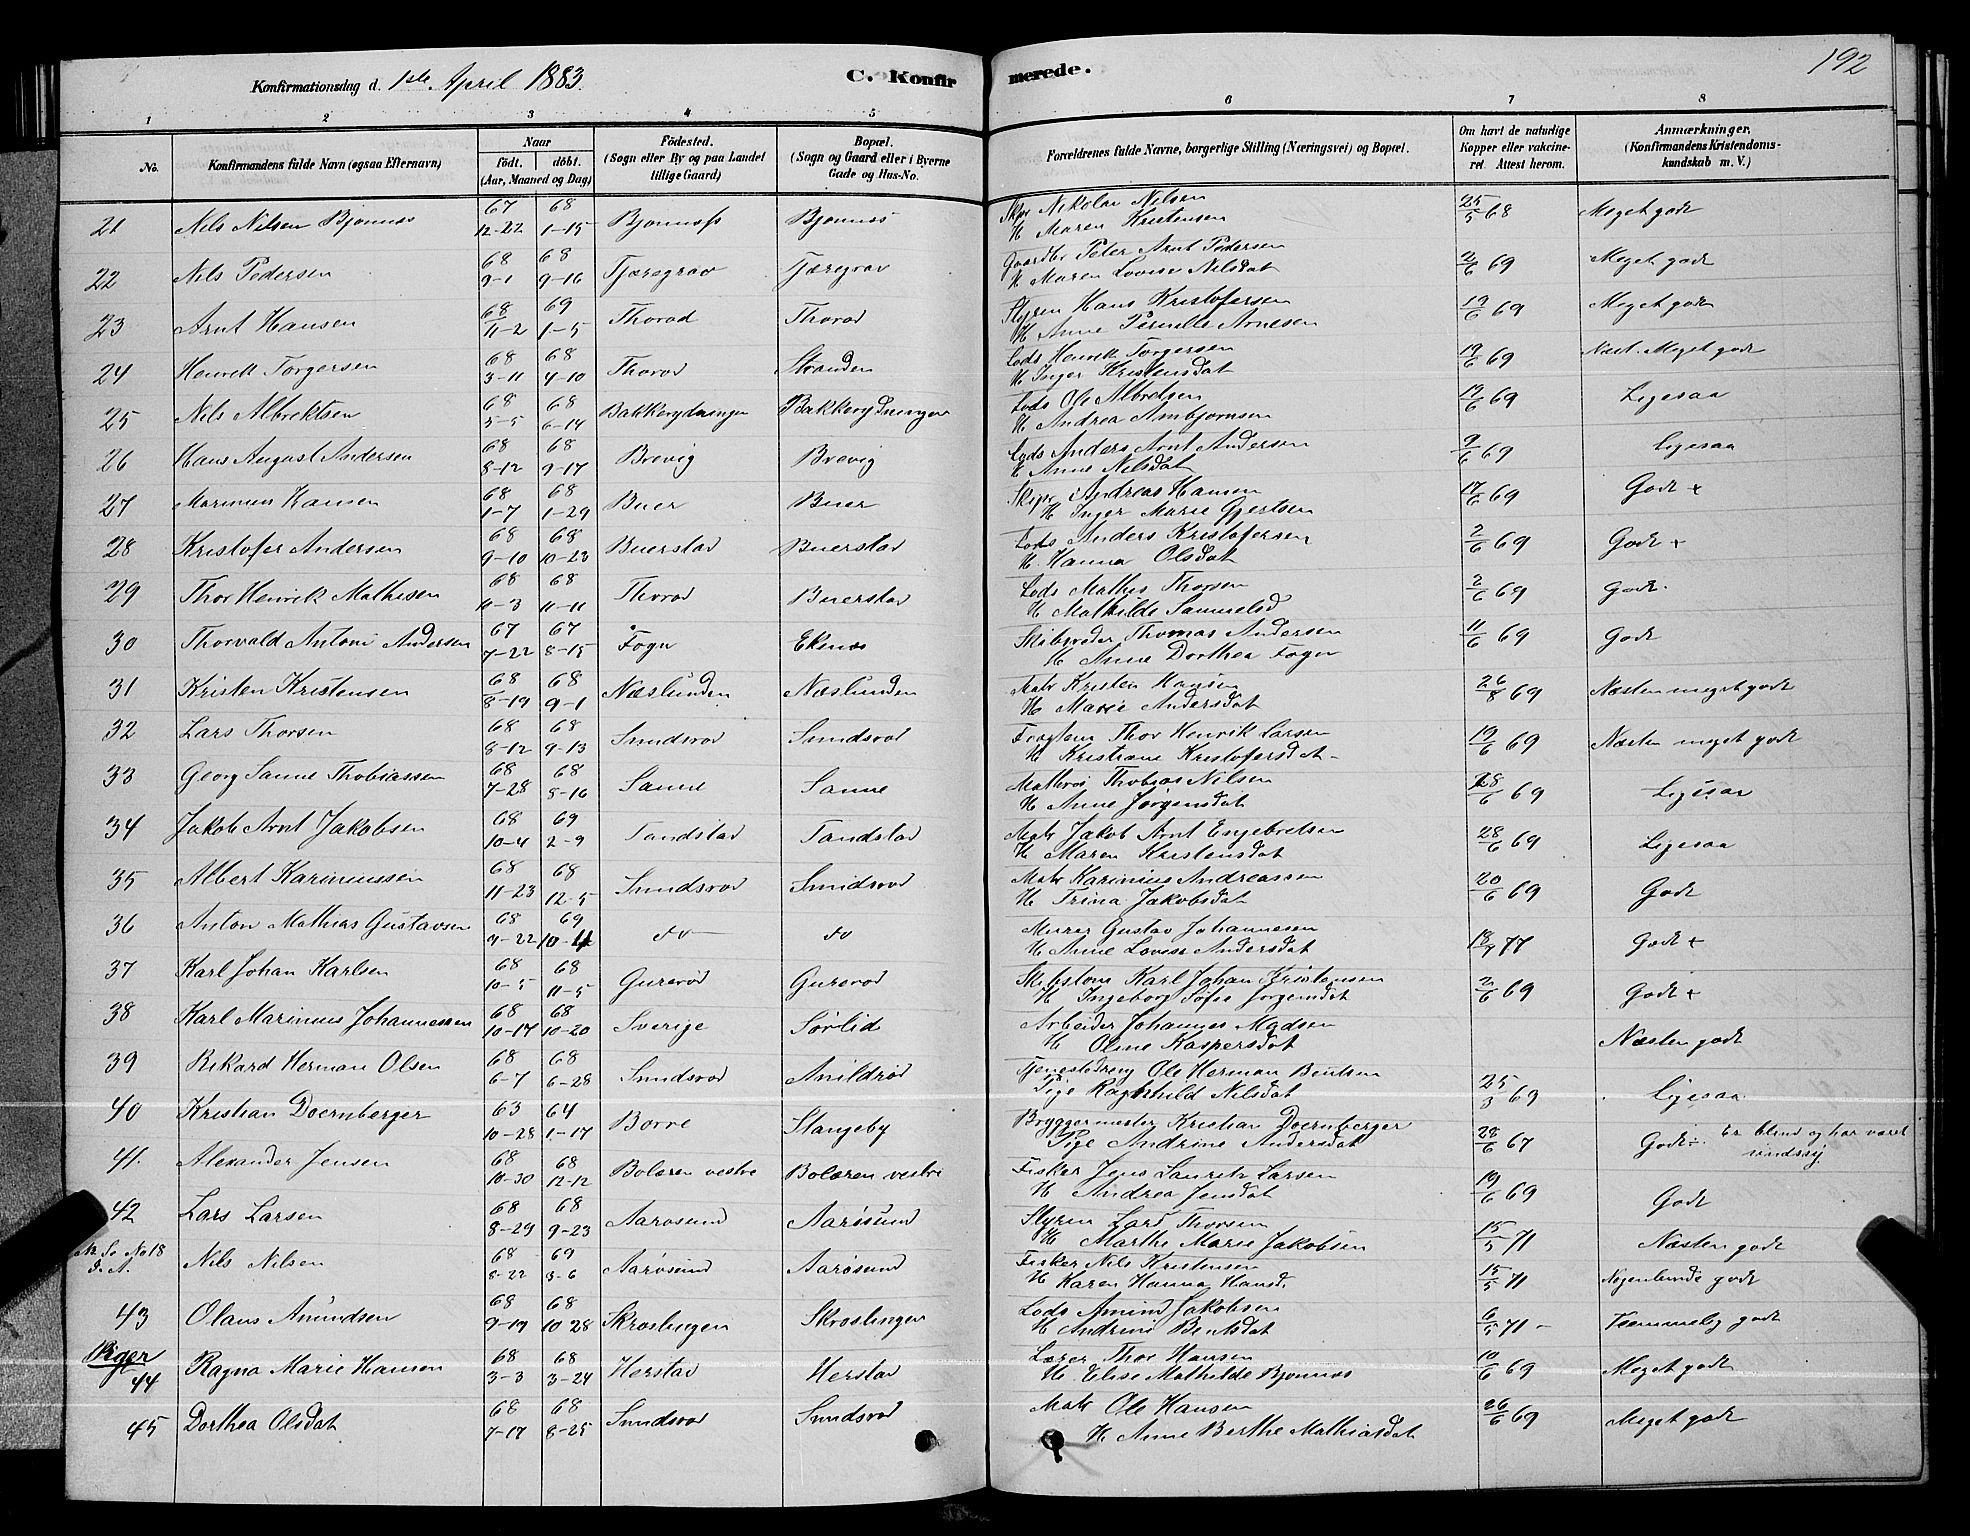 192
Konfirmationsdag d. 1ste April 1883. C. Konfirmerede.
1 2 3 4 5 6 7 8
No. Konfirmandens fulde Navn (ogsaa Efternavn) Naar födt. döbt. (Aar, Maaned og Dag) Födested. (Sogn eller By og paa Landet tillige Gaard) Bopæl. (Sogn og Gaard eller i Byerne Gade og Hus-No. Forældrenes fulde Navne, borgerlige Stilling (Næringsvei) og Bopæl. Om havt de naturlige Kopper eller vakcineret. Attest herom. Anmærkninger. (Konfirmandens Kristendomskundskab m. V.)
21 Nils Nilsen Bjønnes 67 12-22 68 1-15 Bjønness Bjønnes Skpr Nikolai Nilsen H Maren Kristensen 25/5 68 Meget godt
22 Nils Pedersen 68 9-1 68 9-16 Tjæregrav Tjæregrav Gaardbr Peter Arnt Pedersen H Maren Lovise Nilsdat 2/6 69 Meget godt
23 Arnt Hansen 68 11-2 69 1-5 Thorød Thorød Styrm Hans Kristofersen H Anne Pernille Arnesen 19/6 69 Meget godt
24 Henrik Torgersen 68 3-11 68 4-10 Thorød Stranden Lods Henrik Torgersen H Inger Kristensdat 19/6 69 Næst. Meget godt
25 Nils Albrektsen 68 5-5 68 6-14 Bakkerydninger Bakkerydninger Lods Ole Albretsen H Andrea Ambjørnsen 19/6 69 Ligesaa
26 Hans August Andersen 68 8-12 68 9-17 Brevig Brevig Lods Anders Arnt Andersen H Anne Nilsdat 9/6 69 Ligesaa
27 Marinius Hansen 68 1-7 68 1-29 Buer Buer Skipr Andreas Hansen H Inger Marie Gjertsen 17/6 69 Godt +
28 Kristofer Andersen 68 9-10 68 10-23 Buerstad Buerstad Lods Anders Kristofersen H. Hanna Olsdat 2/6 69 Godt +
29 Thor Henrik Mathisen 68 10-3 68 11-11 Thorød Buerstad Lods Mathis Thorsen H Mathilde Samuelsd 2/6 69 Godt.
30 Thorvald Antoni Andersen 67 7-22 67 8-15 Fogn Ekenes Skibsreder Thomas Andersen H Anne Dorthea Fogn 11/6 69 Godt
31 Kristen Kristensen 68 8-19 68 9-1 Næslunden Næslunden Matr Kristen Hansen H Marie Andersdat 26/8 69 Næsten meget godt
32 Lars Thorsen 68 8-12 68 9-13 Sundsrød Sundsrød Thor Henrik Larsen H Kristiane Kristofersdat 19/6 69 Næsten meget godt
33 Georg Sanne Thobiassen 68 7-28 68 8-16 Sanne Sanne Matros Thobias Nilsen H Anne Jørgensdat 28/6 69 Ligesaa
34 Jakob Arnt Jakobsen 68 10-4 69 2-9 Tandstad Tandstad Matr Jakob Arnt Engebretsen H Maren Kristensdat 28/6 69 Ligesaa
35 Albert Kariniussen 68 11-23 68 12-5 Sundsrød Sundsrød Matr Karinius Andreassen H Trina Jakobsdat 20/6 69 Godt
36 Anton Mathias Gustavsen 68 9-22 69 10-4 do do Murer Gustav Johannesen H Anne Lovise Andersdat 18/9 77 Godt +
37 Karl Johan Karlsen 68 10-5 68 11-5 Gurerød Gurerød Skibstøm Karl Johan Kristensen H Ingeborg Sofie Jørgensdat 2/6 69 Godt +
38 Karl Marinius Johannessen 68 10-17 68 10-20 Sverige Sørlid Arbeider Johannes Madsen H Oline Kaspersdat Næsten godt
39 Rikard Herman Olsen 68 6-7 68 6-28 Sundsrød Anildrød Tjenestedreng Ole Herman Bentsen Pige Ragnhild Nilsdat 25/3 69 Ligesaa
40 Kristian Doernberger 63 10-28 64 1-17 Borre Stangeby Bryggermester Kristian Doernberger Pige Andrine Andersdat 28/6 67 Godt ÷ Er blind og har været sindssyg
41. Alexander Jensen 68 10-30 68 12-12 Bolæren vestre Bolæren vestre Fisker Jens Lauritz Larsen H Andrea Jensdat 19/6 69 Godt
42 Lars Larsen 68 8-29 68 9-23 Aarøsund Aarøsund Styrm Lars Thorsen H Marthe Marie Jakobsen 15/5 71 Næsten godt
No 18 Nils Nilsen 68 8-22 69 3-6 Aarøsund Aarøsund Fisker Nils Kristensen H Karen Hanna Hansd. 15/5 71 Nogenlunde godt
43 Olaus Amundsen 68 9-19 68 10 28 Skrøslingen Skrøslingen Lods Amund Jakobsen H Andrine Bentsdat 6/5 71 - Temmelig godt
Piger
44 Ragna Marie Hansen 68 3-3 68 3-24 Herstad Herstad Lærer Thor Hansen H. Elise Mathilde Bjønnes 10/6 69 Meget godt
45 Dorthea Olsdat 68 7-17 68 8-25 Sundsrød Sundsrød Matr Ole Hansen H Anne Berthe Mathiasdat 26/6 69 Meget godt